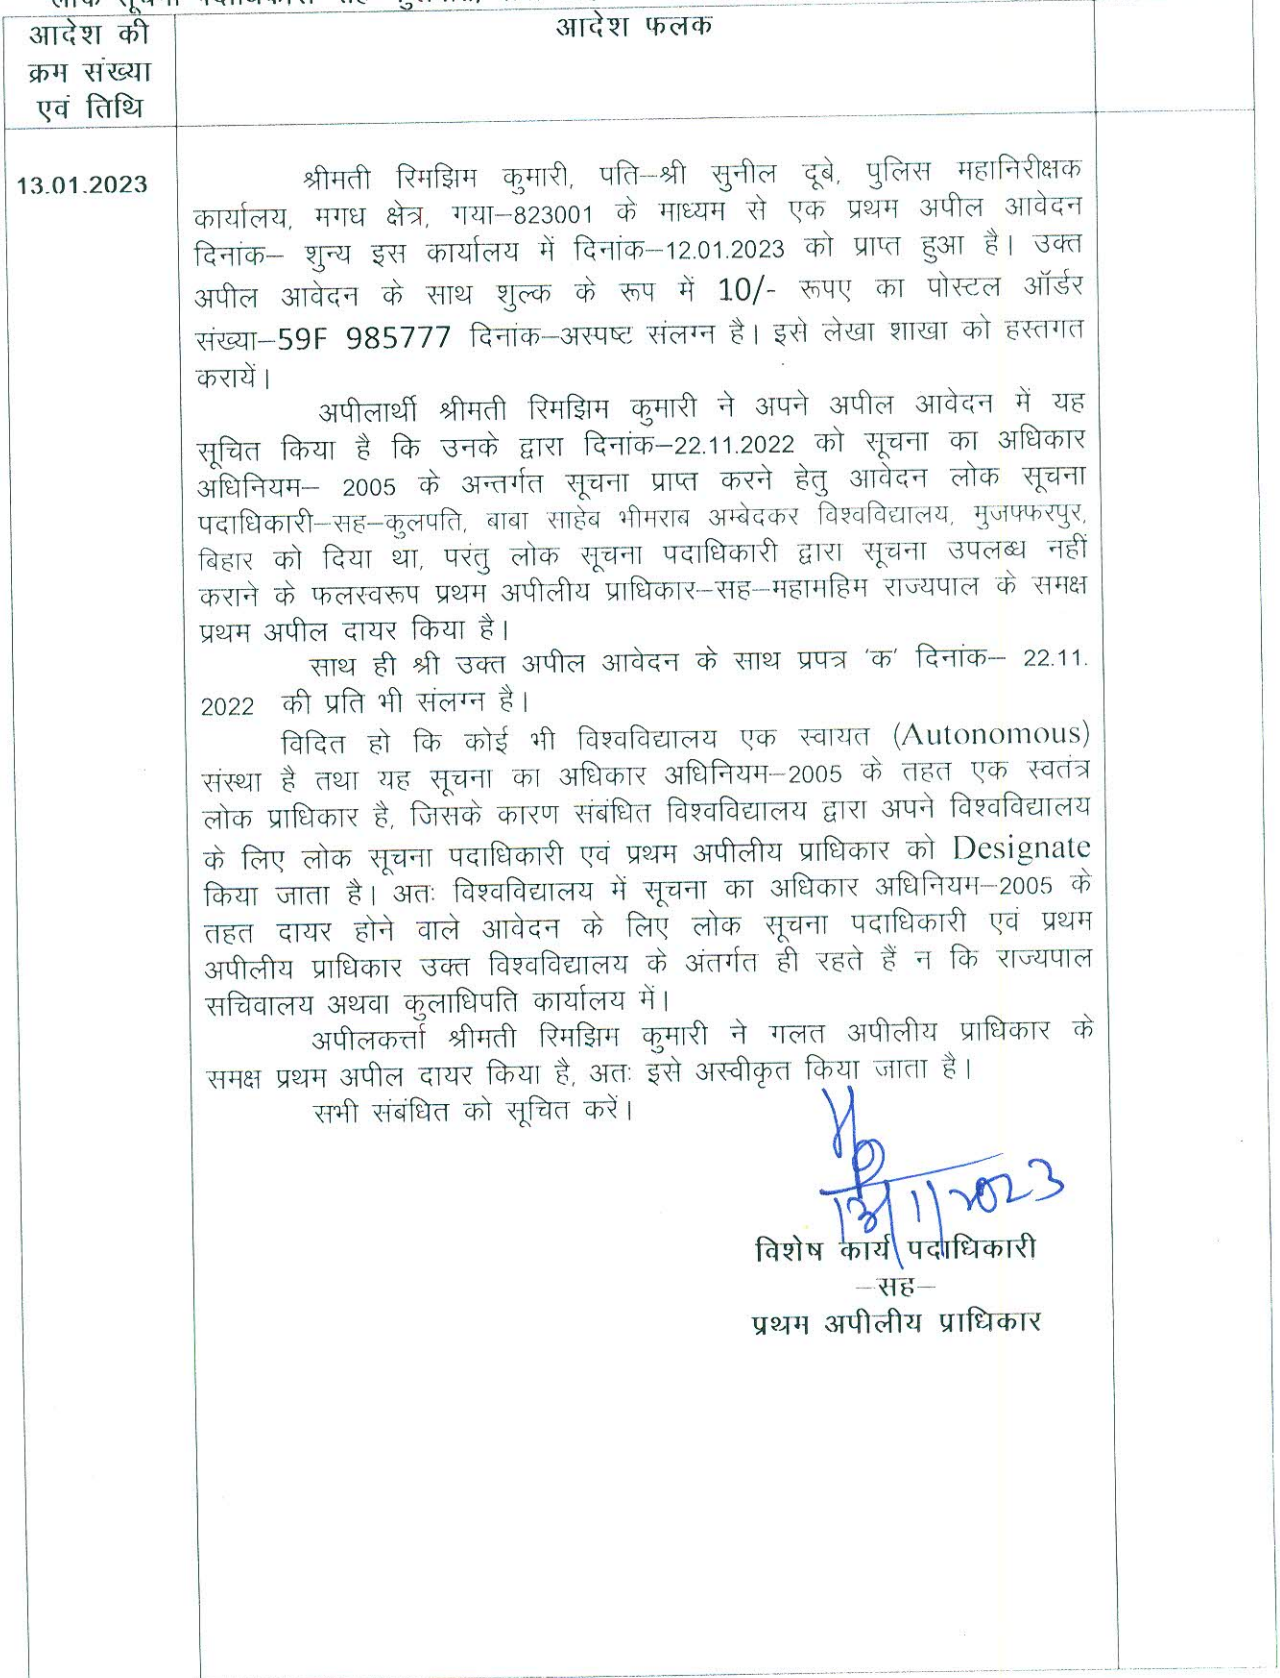 आदेश की
क्रम संख्या
एवं तिथि
आदेश फलक
13.01.2023
श्रीमती रिमझिम कुमारी, पति–श्री सुनील दूबे, पुलिस महानिरीक्षक
कार्यालय, मगध क्षेत्र, गया–823001 के माध्यम से एक प्रथम अपील आवेदन
दिनांक– शुन्य इस कार्यालय में दिनांक–12.01.2023 को प्राप्त हुआ है। उक्त
अपील आवेदन के साथ शुल्क के रूप में 10/- रूपए का पोस्टल ऑर्डर
संख्या–59F 985777 दिनांक–अस्पष्ट संलग्न है। इसे लेखा शाखा को हस्तगत
करायें।
अपीलार्थी श्रीमती रिमझिम कुमारी ने अपने अपील आवेदन में यह
सूचित किया है कि उनके द्वारा दिनांक–22.11.2022 को सूचना का अधिकार
अधिनियम– 2005 के अन्तर्गत सूचना प्राप्त करने हेतु आवेदन लोक सूचना
पदाधिकारी–सह–कुलपति, बाबा साहेब भीमराब अम्बेदकर विश्वविद्यालय, मुजफ्फरपुर,
बिहार को दिया था, परंतु लोक सूचना पदाधिकारी द्वारा सूचना उपलब्ध नहीं
कराने के फलस्वरूप प्रथम अपीलीय प्राधिकार–सह–महामहिम राज्यपाल के समक्ष
प्रथम अपील दायर किया है।
साथ ही श्री उक्त अपील आवेदन के साथ प्रपत्र 'क' दिनांक– 22.11.
2022 की प्रति भी संलग्न है।
विदित हो कि कोई भी विश्वविद्यालय एक स्वायत (Autonomous)
संस्था है तथा यह सूचना का अधिकार अधिनियम–2005 के तहत एक स्वतंत्र
लोक प्राधिकार है, जिसके कारण संबंधित विश्वविद्यालय द्वारा अपने विश्वविद्यालय
के लिए लोक सूचना पदाधिकारी एवं प्रथम अपीलीय प्राधिकार को Designate
किया जाता है। अतः विश्वविद्यालय में सूचना का अधिकार अधिनियम–2005 के
तहत दायर होने वाले आवेदन के लिए लोक सूचना पदाधिकारी एवं प्रथम
अपीलीय प्राधिकार उक्त विश्वविद्यालय के अंतर्गत ही रहते हैं न कि राज्यपाल
सचिवालय अथवा कुलाधिपति कार्यालय में।
अपीलकर्त्ता श्रीमती रिमझिम कुमारी ने गलत अपीलीय प्राधिकार के
समक्ष प्रथम अपील दायर किया है, अतः इसे अस्वीकृत किया जाता है।
सभी संबंधित को सूचित करें।
13/1/2023
विशेष कार्य पदाधिकारी
–सह–
प्रथम अपीलीय प्राधिकार